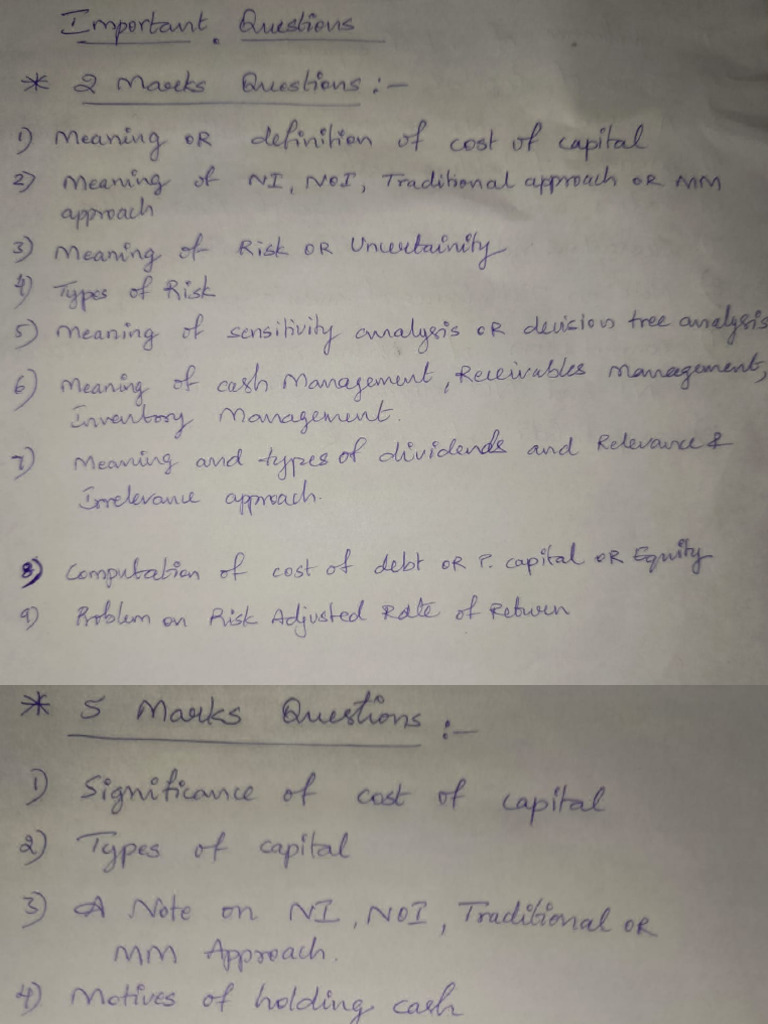 Important Questions
* 2 Marks Questions :-
1) Meaning OR definition of cost of capital
2) Meaning of NI, NOI, Traditional approach OR MM
approach
3) Meaning of Risk OR Uncertainity
4) Types of Risk
5) Meaning of sensitivity analysis OR decision tree analysis
6) Meaning of cash Management, Receivables management,
Inventory Management.
7) Meaning and types of dividends and Relevance &
Irrelevance approach.
8) Computation of cost of debt OR P. capital OR Equity
9) Problem on Risk Adjusted Rate of Return
* 5 Marks Questions :-
1) Significance of cost of capital
2) Types of capital
3) A Note on NI, NOI, Traditional OR
MM Approach.
4) Motives of holding cash